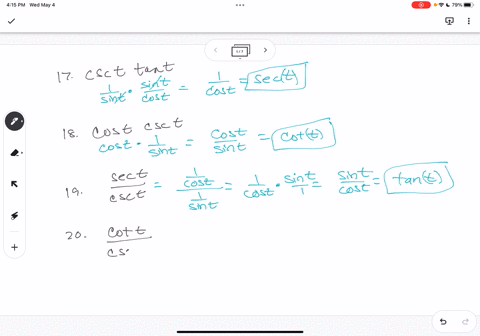 4:15 PM Wed May 4
79%
1/1
17. csct tant
1/sint · sint/cost = 1/cost = sec(t)
18. cost csct
cost · 1/sint = cost/sint = cot(t)
19. sect/csct = (1/cost)/(1/sint) = 1/cost · sint/1 = sint/cost = tan(t)
20. cott/cs